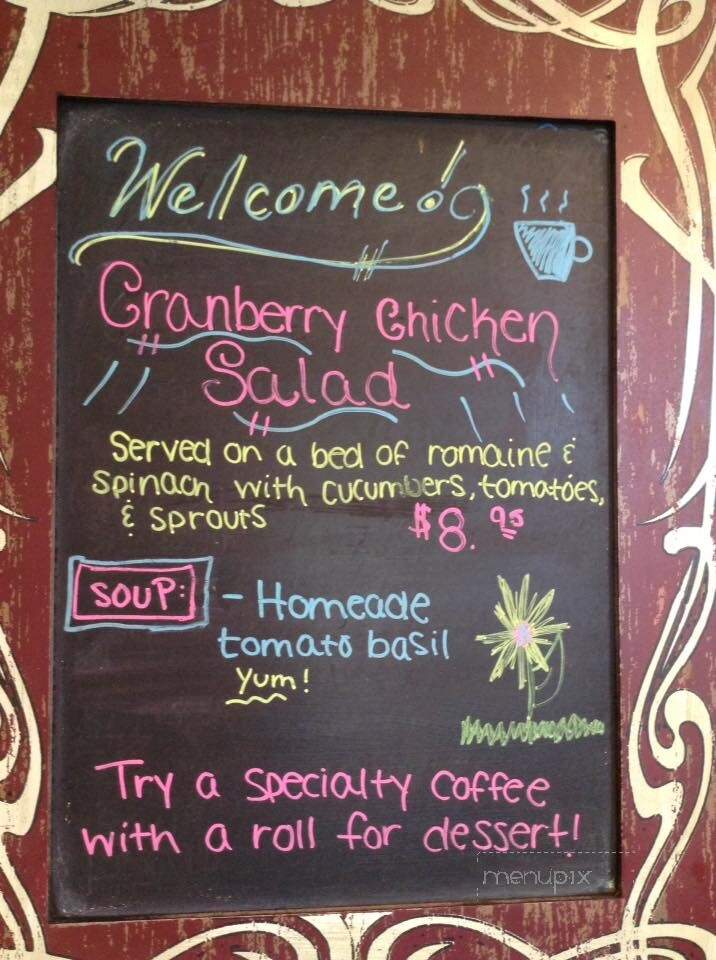 Welcome!
Cranberry Chicken
Salad
Served on a bed of romaine &
spinach with cucumbers, tomatoes,
& sprouts $8.95
SOUP: - Homeade
tomato basil
Yum!
Try a specialty coffee
with a roll for dessert!
menupix